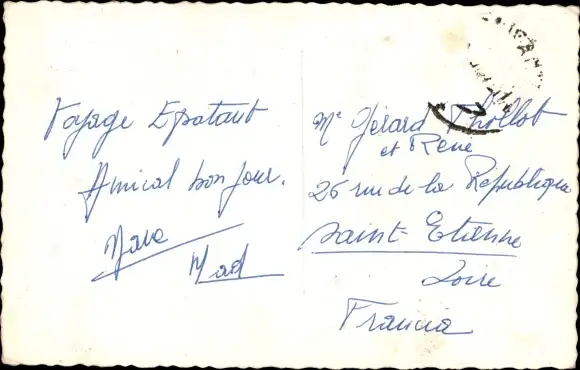 Voyage Epatant
Amical bonjour.
Mad
Mr Gérard Thollot
et René
26 rue de la Republique
Saint-Etienne
Loire
Francia